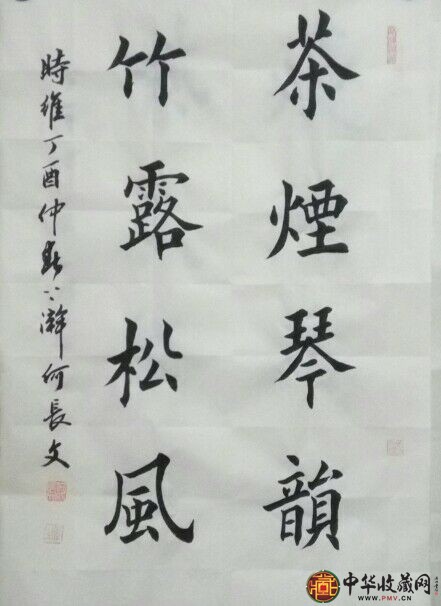 茶煙琴韻
竹露松風
時維丁酉仲春上澣何長文
中华收藏网
WWW.PMV.CN